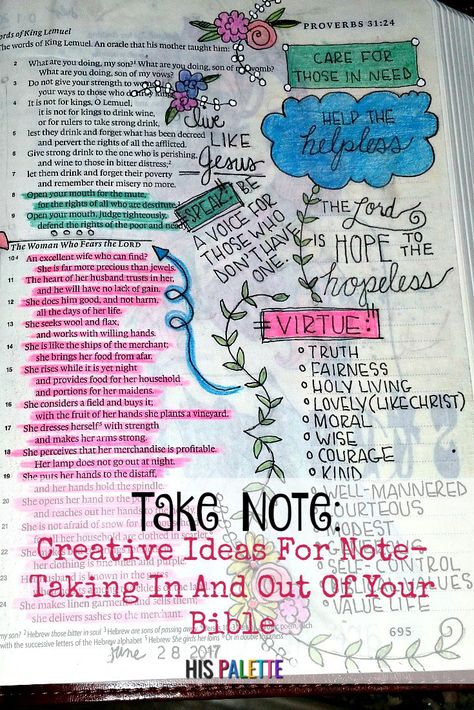 ords of King Lemuel
The words of King Lemuel. An oracle that his mother taught him:
2 What are you doing, my son? What are you doing, son of my womb?
What are you doing, son of my vows?
3 Do not give your strength to
your ways to those who
4 It is not for kings, O Lemuel,
it is not for kings to drink wine,
or for rulers to take strong drink,
5 lest they drink and forget what has been decreed
and pervert the rights of all the afflicted.
6 Give strong drink to the one who is perishing,
and wine to those in bitter distress;
7 let them drink and forget their poverty
and remember their misery no more.
8 Open your mouth for the mute,
for the rights of all who are destitute.
9 Open your mouth, judge righteously,
defend the rights of the poor and
The Woman Who Fears the LORD
10 An excellent wife who can find?
She is far more precious than jewels.
11 The heart of her husband trusts in her,
and he will have no lack of gain.
12 She does him good, and not harm,
all the days of her life.
13 She seeks wool and flax,
and works with willing hands.
14 She is like the ships of the merchant;
she brings her food from afar.
15 She rises while it is yet night
and provides food for her household
and portions for her maidens.
16 She considers a field and buys it;
with the fruit of her hands she plants a vineyard.
17 She dresses herself with strength
and makes her arms strong.
18 She perceives that her merchandise is profitable.
Her lamp does not go out at night.
19 She puts her hands to the distaff,
and her hands hold the spindle.
20 She opens her hand to the
and reaches out her hands to
21 She is not afraid of snow for
PROVERBS 31:24
CARE FOR
THOSE IN NEED
HELP THE
helpless
Live
LIKE
Jesus
SPEAK: BE
A VOICE FOR
THOSE WHO
DON'T HAVE
ONE.
THE Lord
IS HOPE TO THE
hopeless
VIRTUE:
TRUTH
FAIRNESS
HOLY LIVING
LOVELY (LIKE CHRIST)
MORAL
WISE
COURAGE
KIND
WELL-MANNERED
COURTEOUS
MODEST
SELF-CONTROL
VALUES
VALUE LIFE
Take Note:
Creative Ideas For Note-
Taking In And Out Of Your
Bible
24 She makes linen garments and sells them;
she delivers sashes to the merchant.
695
June 28 2017
HIS PALETTE